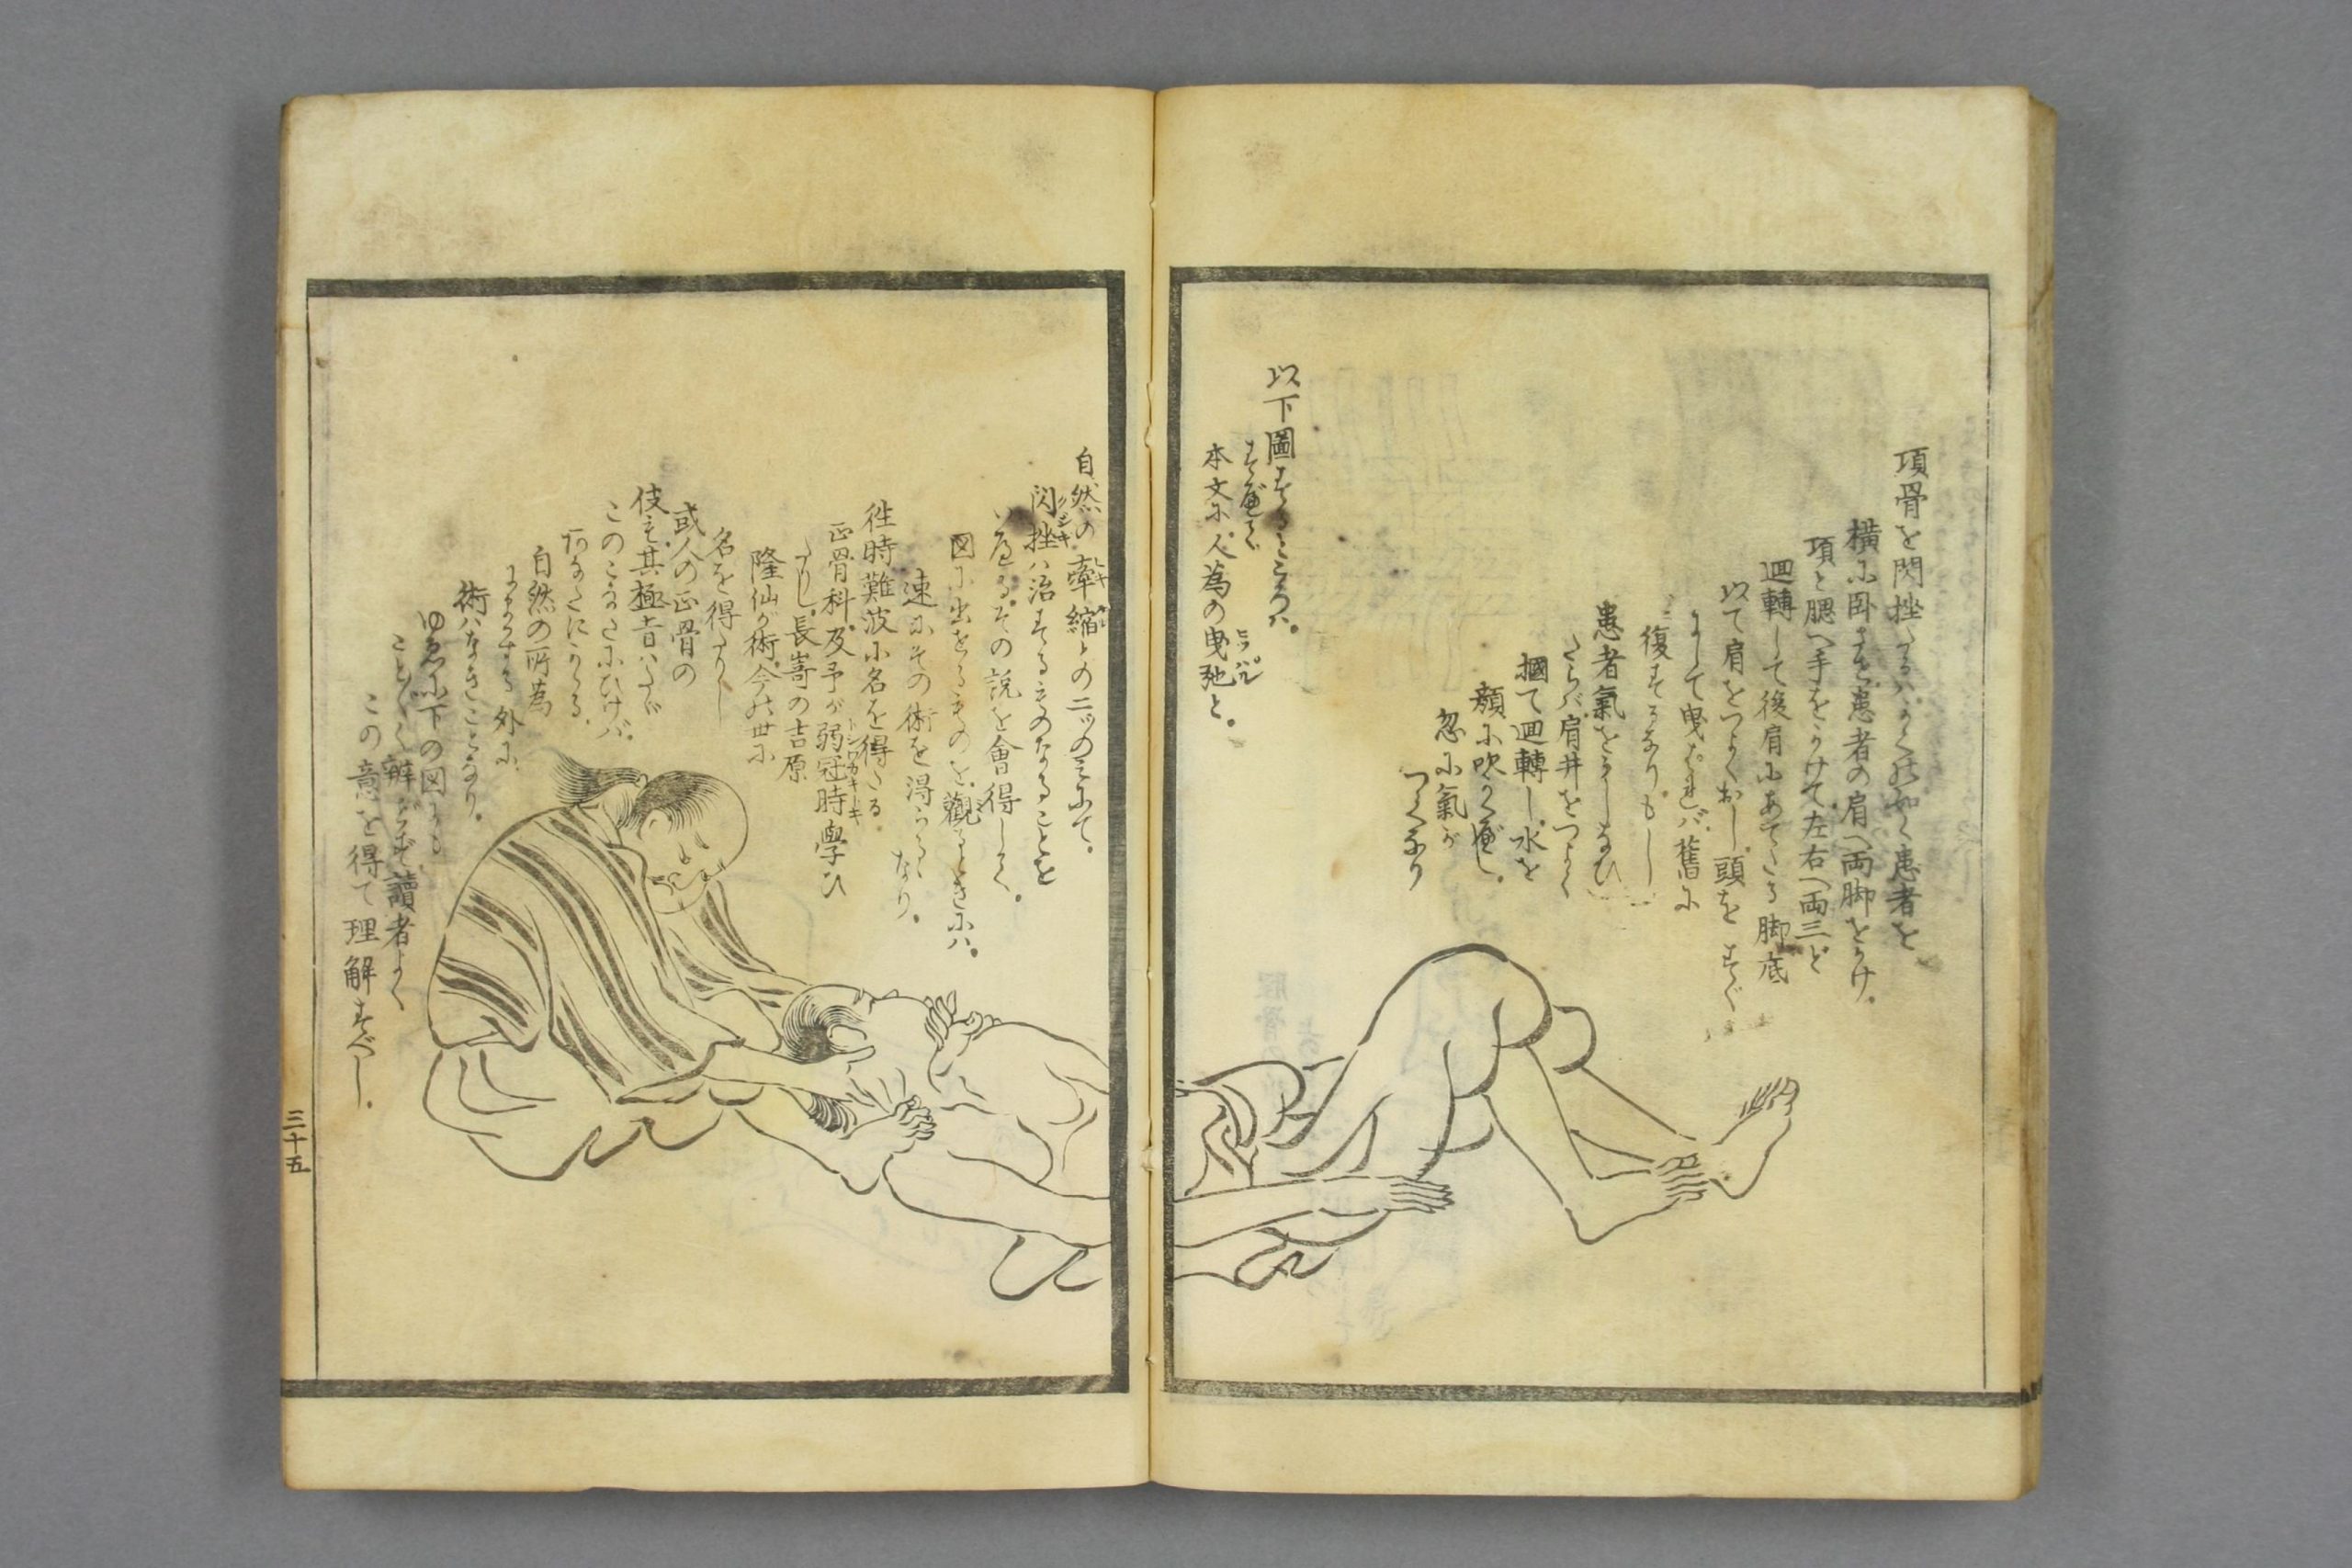 項骨を閃挫たるハ。かくの如く患者を
横に卧さセ。患者の肩へ両脚をかけ。
項と腮へ手をかけて。左右へ両三ど
廻轉して後肩にあてたる脚底
以て肩をつよくおし。頭をすぐ
にして曳ばれバ。舊に
復するなり。もし
患者氣をうしなひ
たらバ。肩井をつよく
摑て廻轉し。水を
顔に吹くべし。
忽に氣が
つくなり
以下圖するところハ。
すべて
本文に。人為の曳弛と。
ヒツパル
自然の牽縮との二ツのミにて。
閃挫ハ治するものなることを
クジキ
いへる。その説を會得しく。
図に出せるものを觀るときにハ。
速にその術を得らるゝなり。
徃時難波に名を得たる
正骨科。及予が弱冠時學ひ
トシワカキトキ
たりし。長嵜の吉原
隆仙が術。今の世に
名を得たりし
或人の正骨の
伎も。其極旨ハたゞ
このこなたにひけバ。
あなたにかへる。
自然の所為
にまかする外に。
術ハなきことなり。
ゆゑに下の図にも
ことごとく辨ぜず。讀者よく
この意を得て理解すべし。
三十五